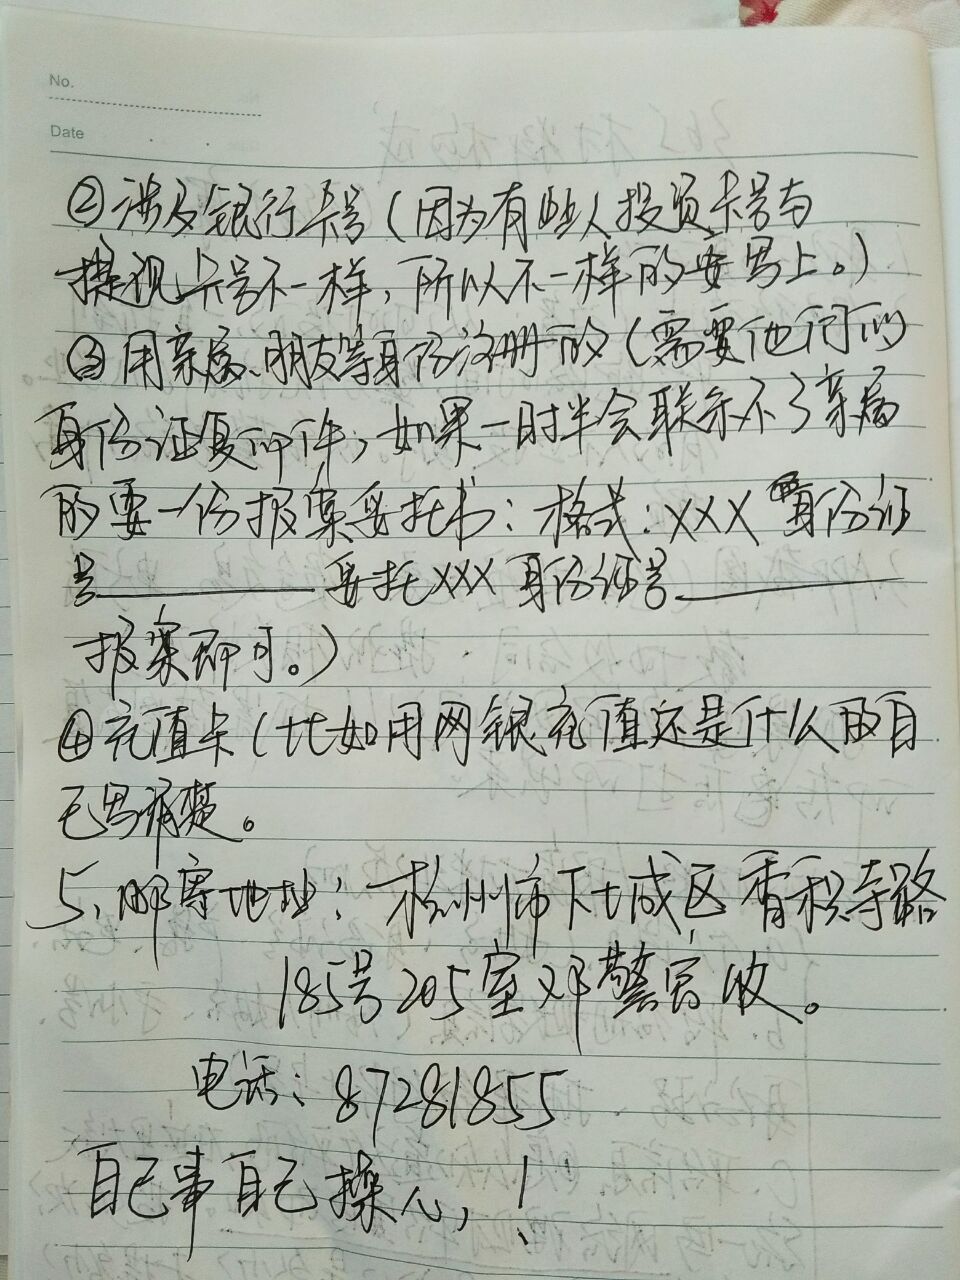 No.
Date
②涉及银行卡号(因为有些人投资卡号与
提现卡号不一样,所以不一样的要写上。)
③用亲属、朋友等身份注册的(需要他们的
身份证复印件,如果一时半会联系不了亲属
的要一份报案委托书:格式:XXX 身份证
号________委托XXX身份证号________
报案即可。)
④充值卡(比如用网银充值还是什么的自
己写清楚。
5、邮寄地址:杭州市下城区香积寺路
185号205室邓警官收。
电话:87281855
自己事自己操心,!